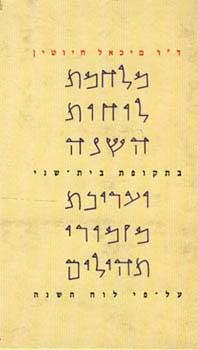 ד"ר מיכאל חיוטין
מלחמת
לוחות
השנה
בתקופת בית־שני
ועריכת
מזמורי
תהילים
על־פי לוח השנה